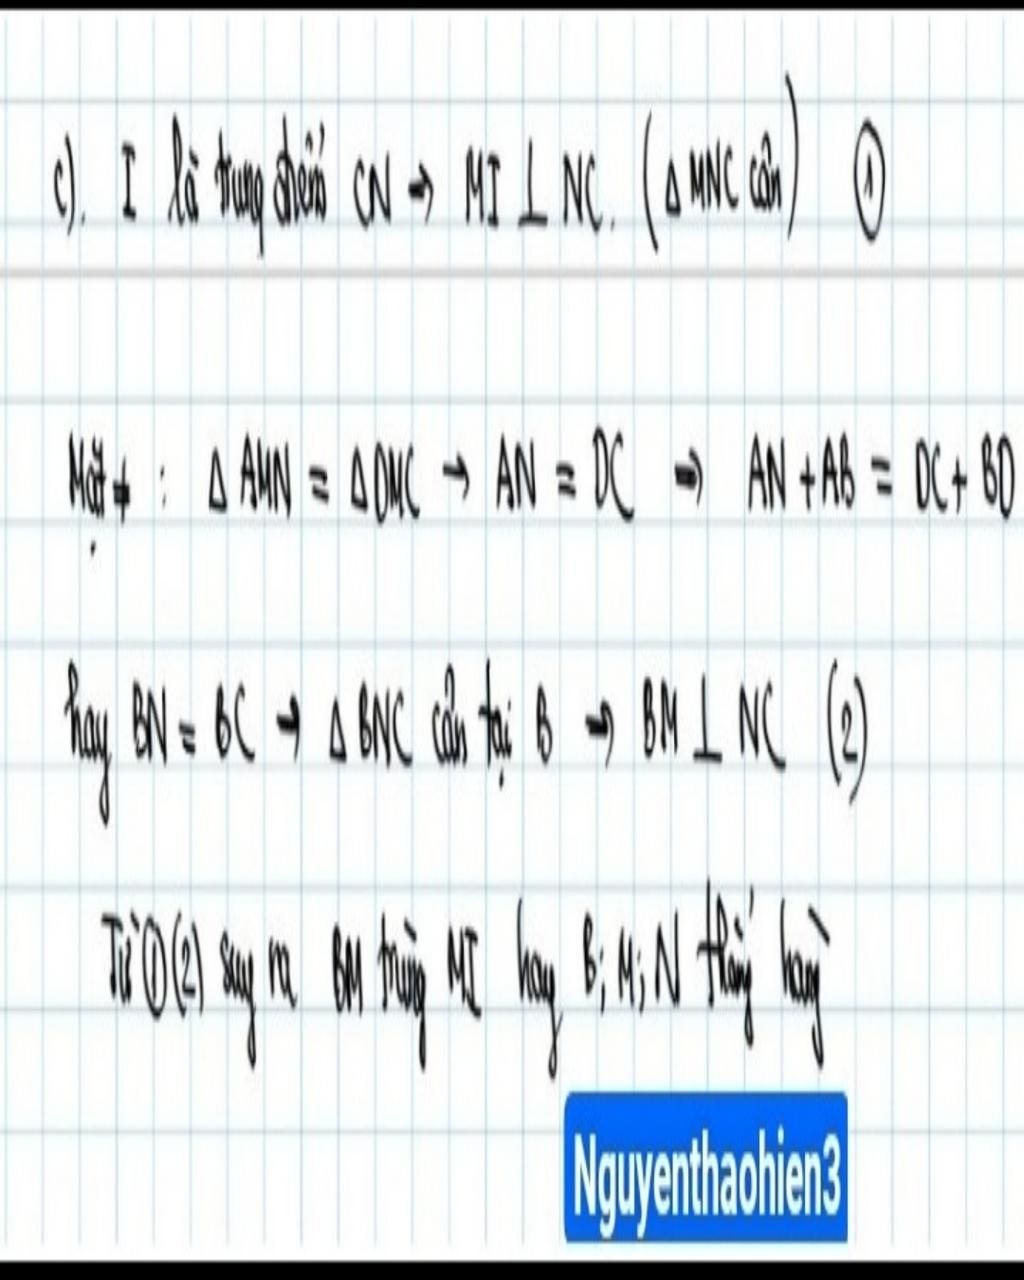 c). I là trung điểm CN → MI ⊥ NC. (Δ MNC cân) ①
Mặt ≠ : Δ AMN = Δ DMC → AN = DC → AN + AB = DC + BD
hay BN = BC → Δ BNC cân tại B → BM ⊥ NC (2)
Từ ① (2) suy ra BM trùng MI hay B; M; N thẳng hàng
Nguyenthaohien3